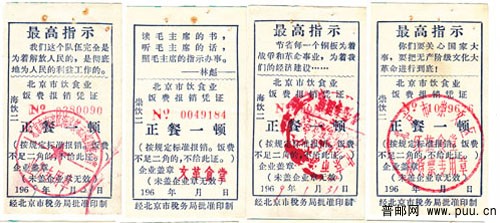 最高指示
我们这个队伍完全是
为着解放人民的，是彻底
地为人民的利益工作的。
北京市饮食业
饭费报销凭证
海饮二
No
正餐一顿
（按规定标准报销。饭费
不足二角的，不给此证。）
企业盖章
（未盖企业章无效）
196 年 月 日
经北京市税务局批准印制
读毛主席的书，
听毛主席的话，
照毛主席的指示办事。
——林彪——
北京市饮食业
饭费报销凭证
崇饮
No 0049184
正餐一顿
（按规定标准报销。饭费
不足二角的，不给此证。）
企业盖章
（未盖企业章无效）
196 年 月 日
经北京市税务局批准印制
最高指示
节省每一个铜板为着
战争和革命事业，为着我
们的经济建设……
北京市饮食业
饭费报销凭证
海饮二
No
正餐一顿
（按规定标准报销。饭费
不足二角的，不给此证。）
企业盖章
（未盖企业章无效）
196 年 1月31日
经北京市税务局批准印制
最高指示
你们要关心国家大
事，要把无产阶级文化大
革命进行到底！
北京市饮食业
饭费报销凭证
No
正餐一顿
（按规定标准报销。饭费
不足二角的，不给此证。）
企业盖章
（未盖企业章无效）
196 年 月 日
经北京市税务局批准印制
普邮网 www.puu.cn